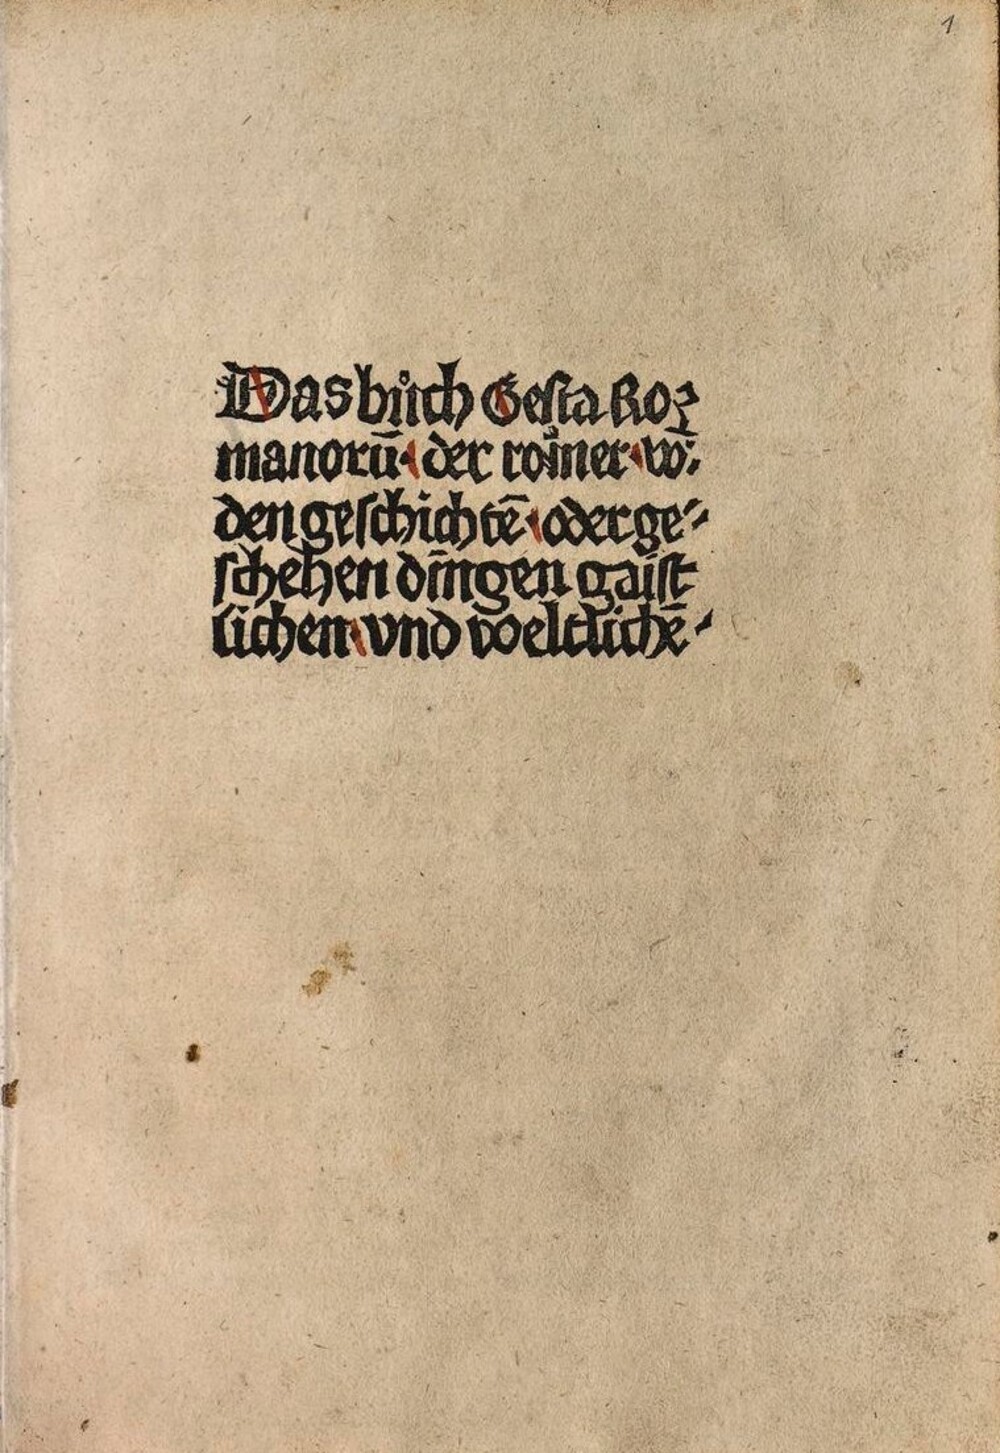 1
Das bůch Gesta Ro⸗
manorū· der römer· võ·
den geschichtē· oder ge⸗
schehen dingen gaist
lichen· vnd weltlichē⸗